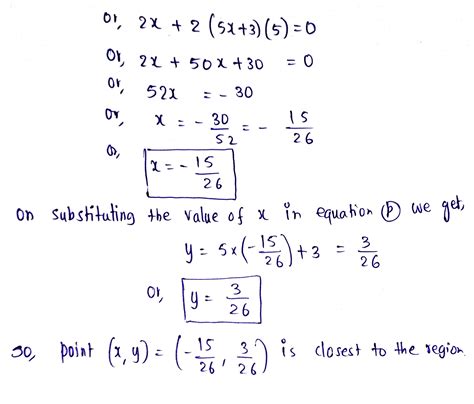 or, 2x + 2(5x+3)(5) = 0
or, 2x + 50x + 30 = 0
or, 52x = - 30
or, x = - 30/52 = - 15/26
or, x = - 15/26
on substituting the value of x in equation (P) we get,
y = 5x(-15/26) + 3 = 3/26
or, y = 3/26
so, point (x, y) = (-15/26, 3/26) is closest to the region.